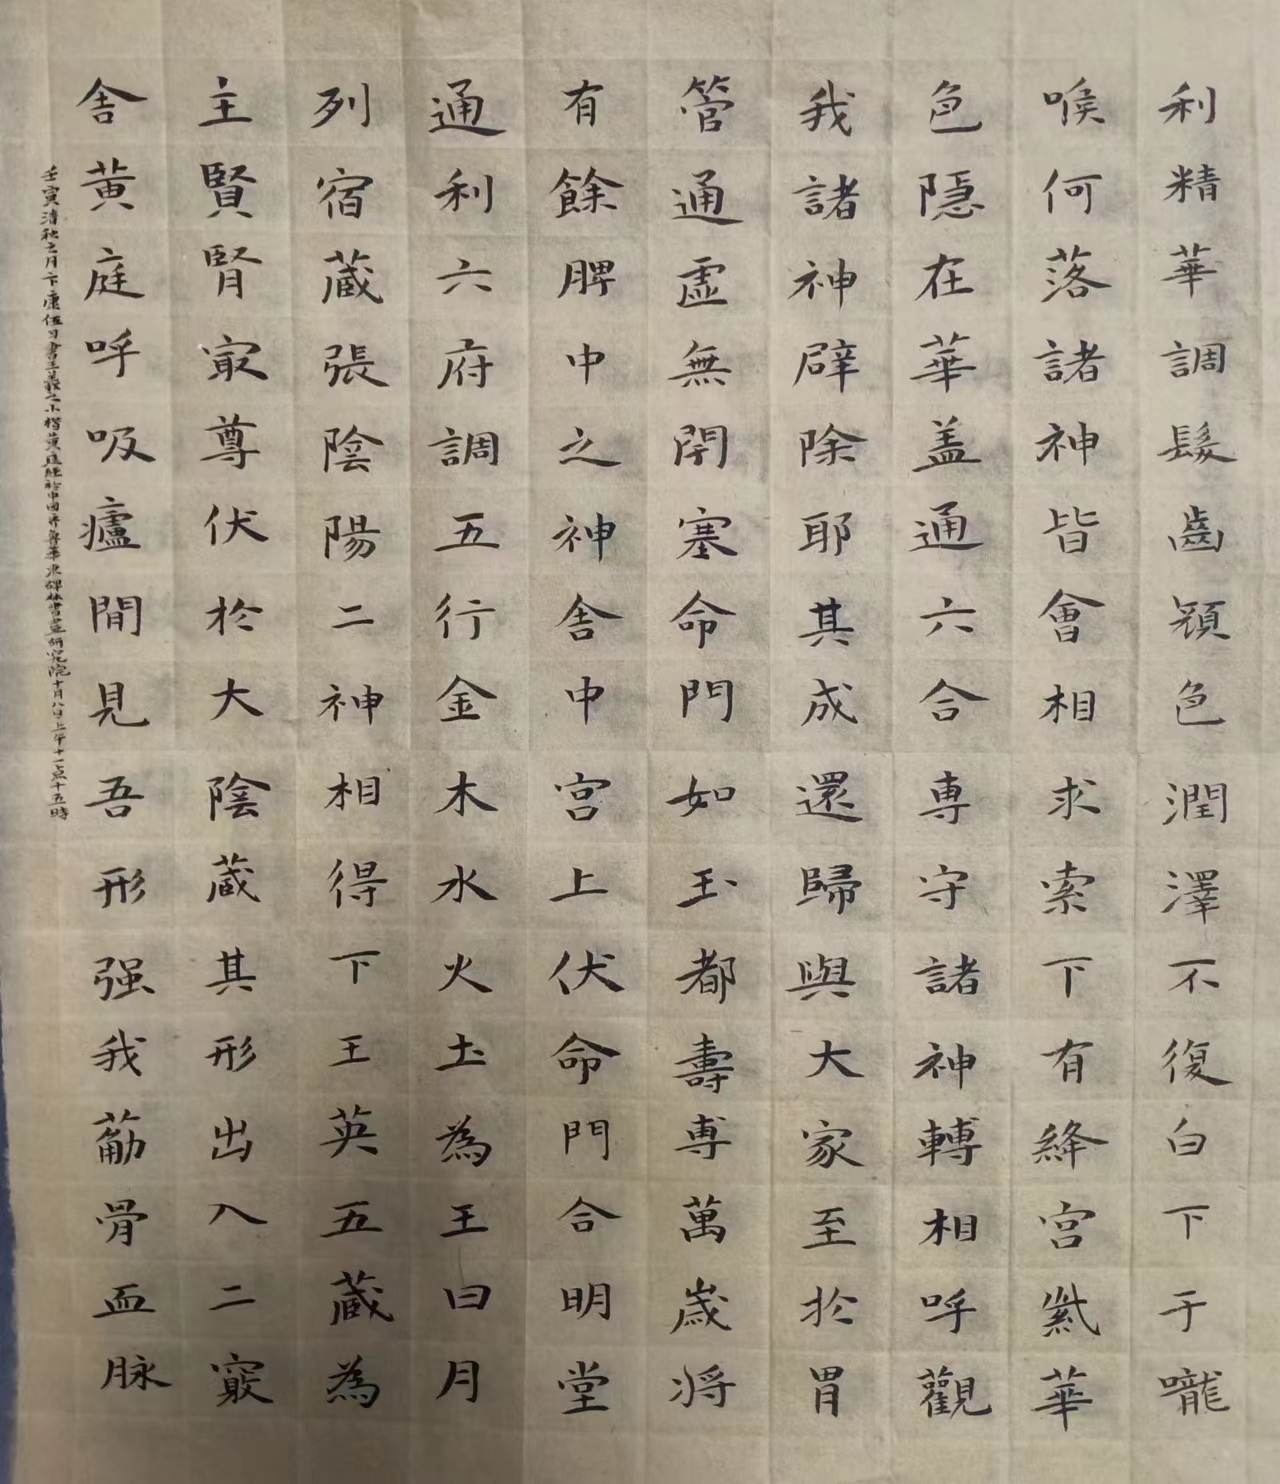 利精華調髮齒顏色潤澤不復白下于嚨
喉何落諸神皆會相求索下有絳宮紫華
色隱在華蓋通六合專守諸神轉相呼觀
我諸神辟除耶其成還歸與大家至於胃
管通虛無閉塞命門如玉都壽專萬歲將
有餘脾中之神舍中宮上伏命門合明堂
通利六府調五行金木水火土為王日月
列宿藏張陰陽二神相得下玉英五藏為
主賢腎最尊伏於大陰藏其形出入二竅
舍黃庭呼吸廬間見吾形强我筋骨血脉
壬寅清秋之月下庚伍日書王羲之小楷黃庭經於中國書畫研究院十月八日上午十一点十五時